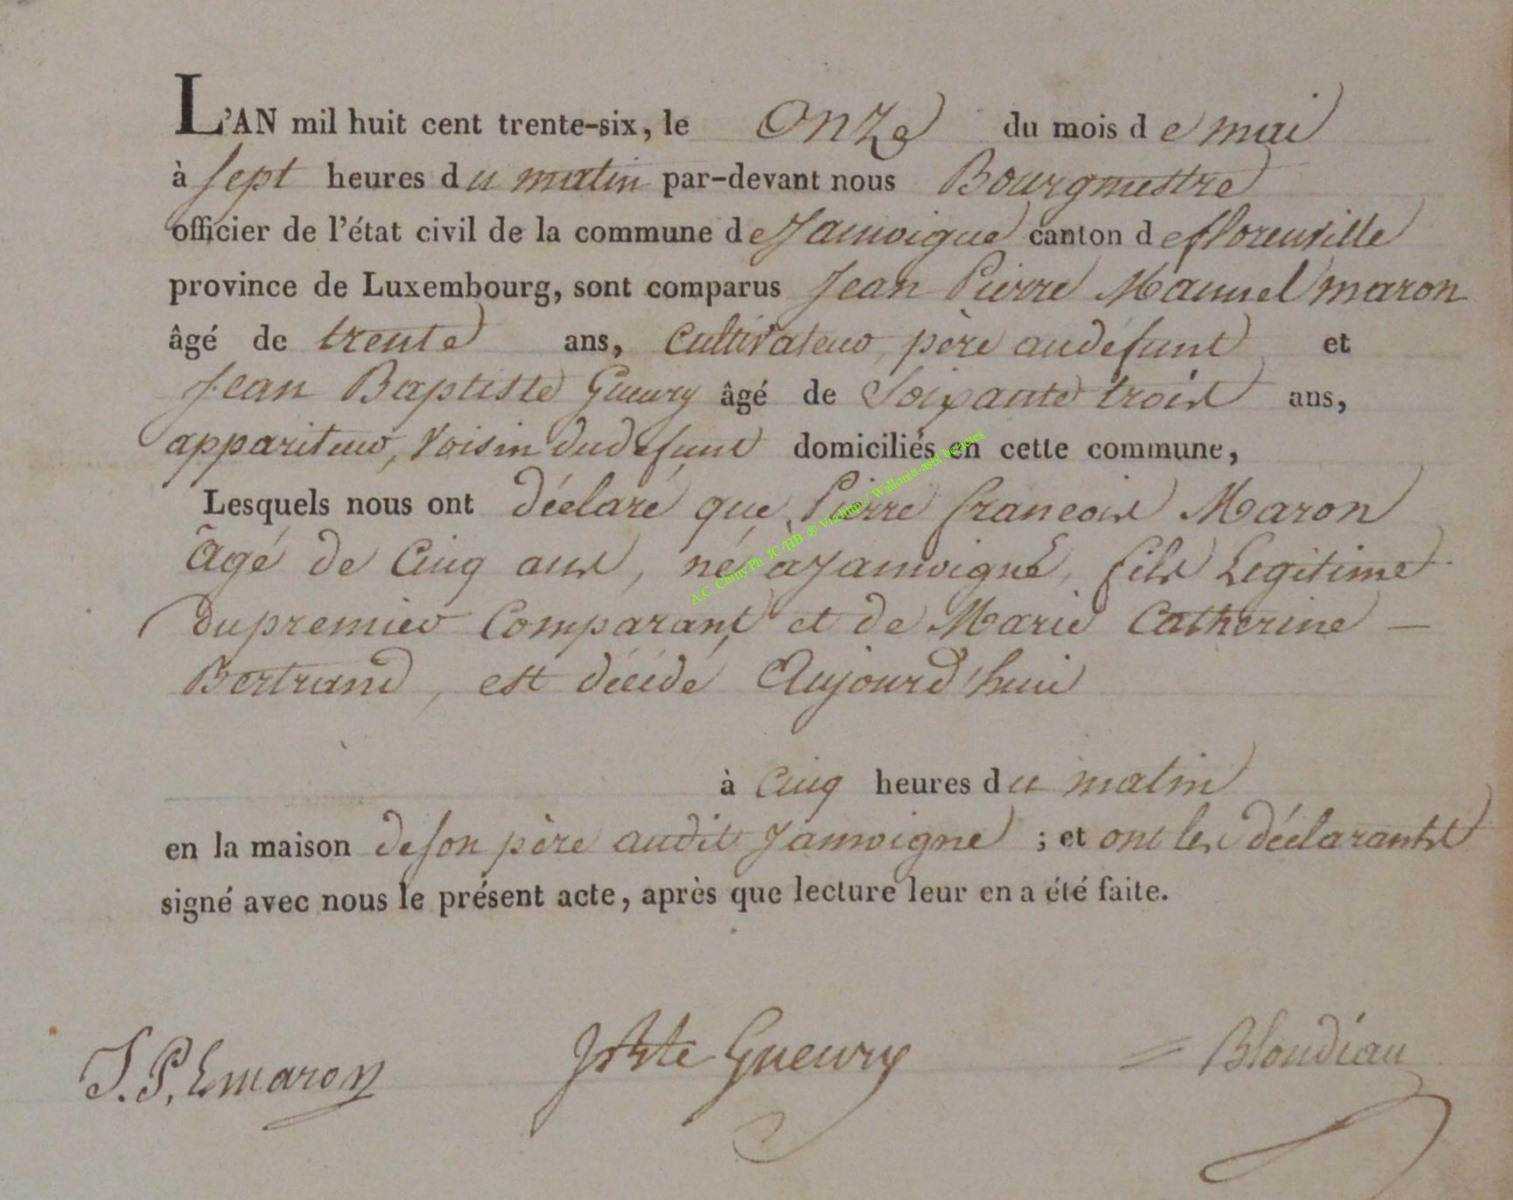 L'AN mil huit cent trente-six, le onze du mois de mai
à sept heures du matin par-devant nous Bourgmestre
officier de l'état civil de la commune de Jamoigne canton de florenville
province de Luxembourg, sont comparus Jean Pierre Manuel maron
âgé de trente ans, cultivateur, père au défunt et
Jean Baptiste Gueury âgé de Soixante trois ans,
appariteur, Voisin du défunt domiciliés en cette commune,
Lesquels nous ont déclaré que Pierre françois Maron
Âgé de Cinq ans, né à Jamoigne, fils Legitime
du premier Comparant et de Marie Catherine —
Bertrand, est décédé Aujourd'hui
à Cinq heures du matin
en la maison de son père audit Jamoigne ; et ont les déclarants
signé avec nous le présent acte, après que lecture leur en a été faite.
J. P. Emaron Jbte Gueury = Blondiau